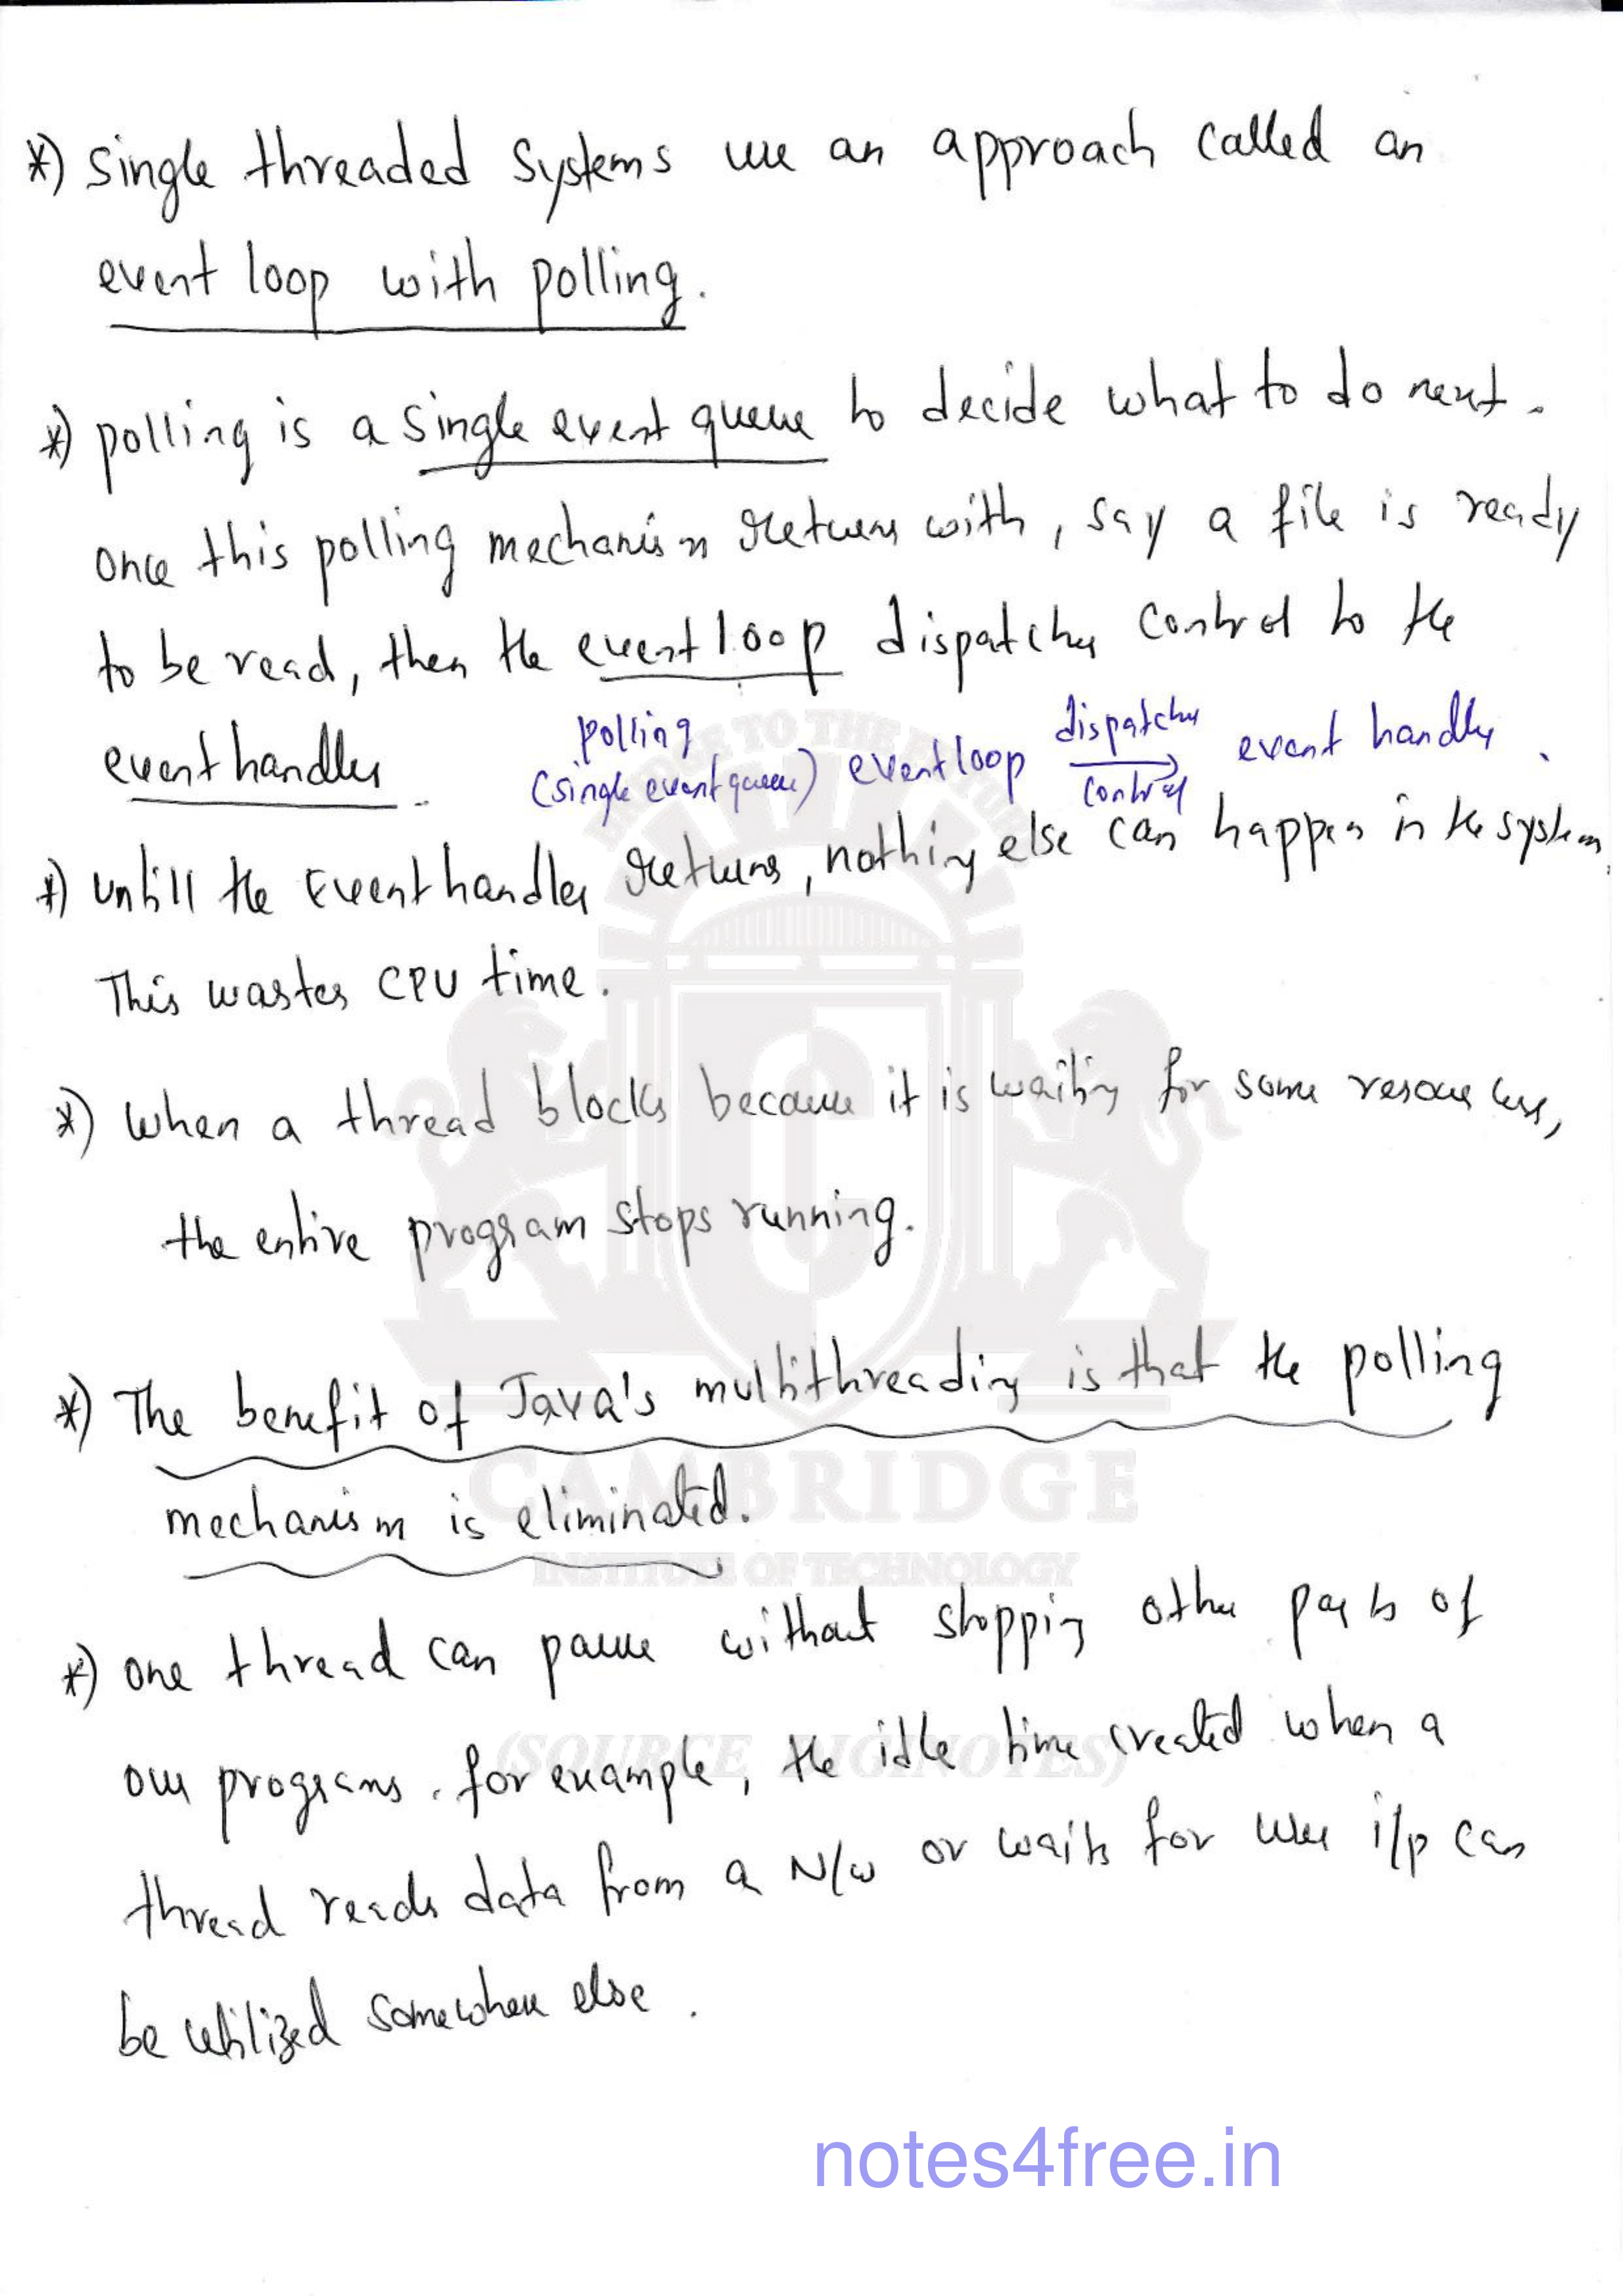 *) Single threaded Systems use an approach called an
event loop with polling.
*) polling is a single event queue to decide what to do next.
once this polling mechanism returns with, say a file is ready
to be read, then the event loop dispatches control to the
event handler.
polling
(single event queue) event loop dispatches control event handler.
*) untill the Event handler returns, nothing else can happen in the system.
This wastes CPU time.
*) when a thread blocks because it is waiting for some resources,
the entire program stops running.
*) The benefit of Java's multithreading is that the polling
mechanism is eliminated.
*) one thread can pause without stopping other parts of
our programs. for example, the idle time created when a
thread reads data from a N/w or waits for user i/p can
be utilized somewhere else.
CAMBRIDGE
INSTITUTE OF TECHNOLOGY
(SOURCE DIGINOTES)
notes4free.in